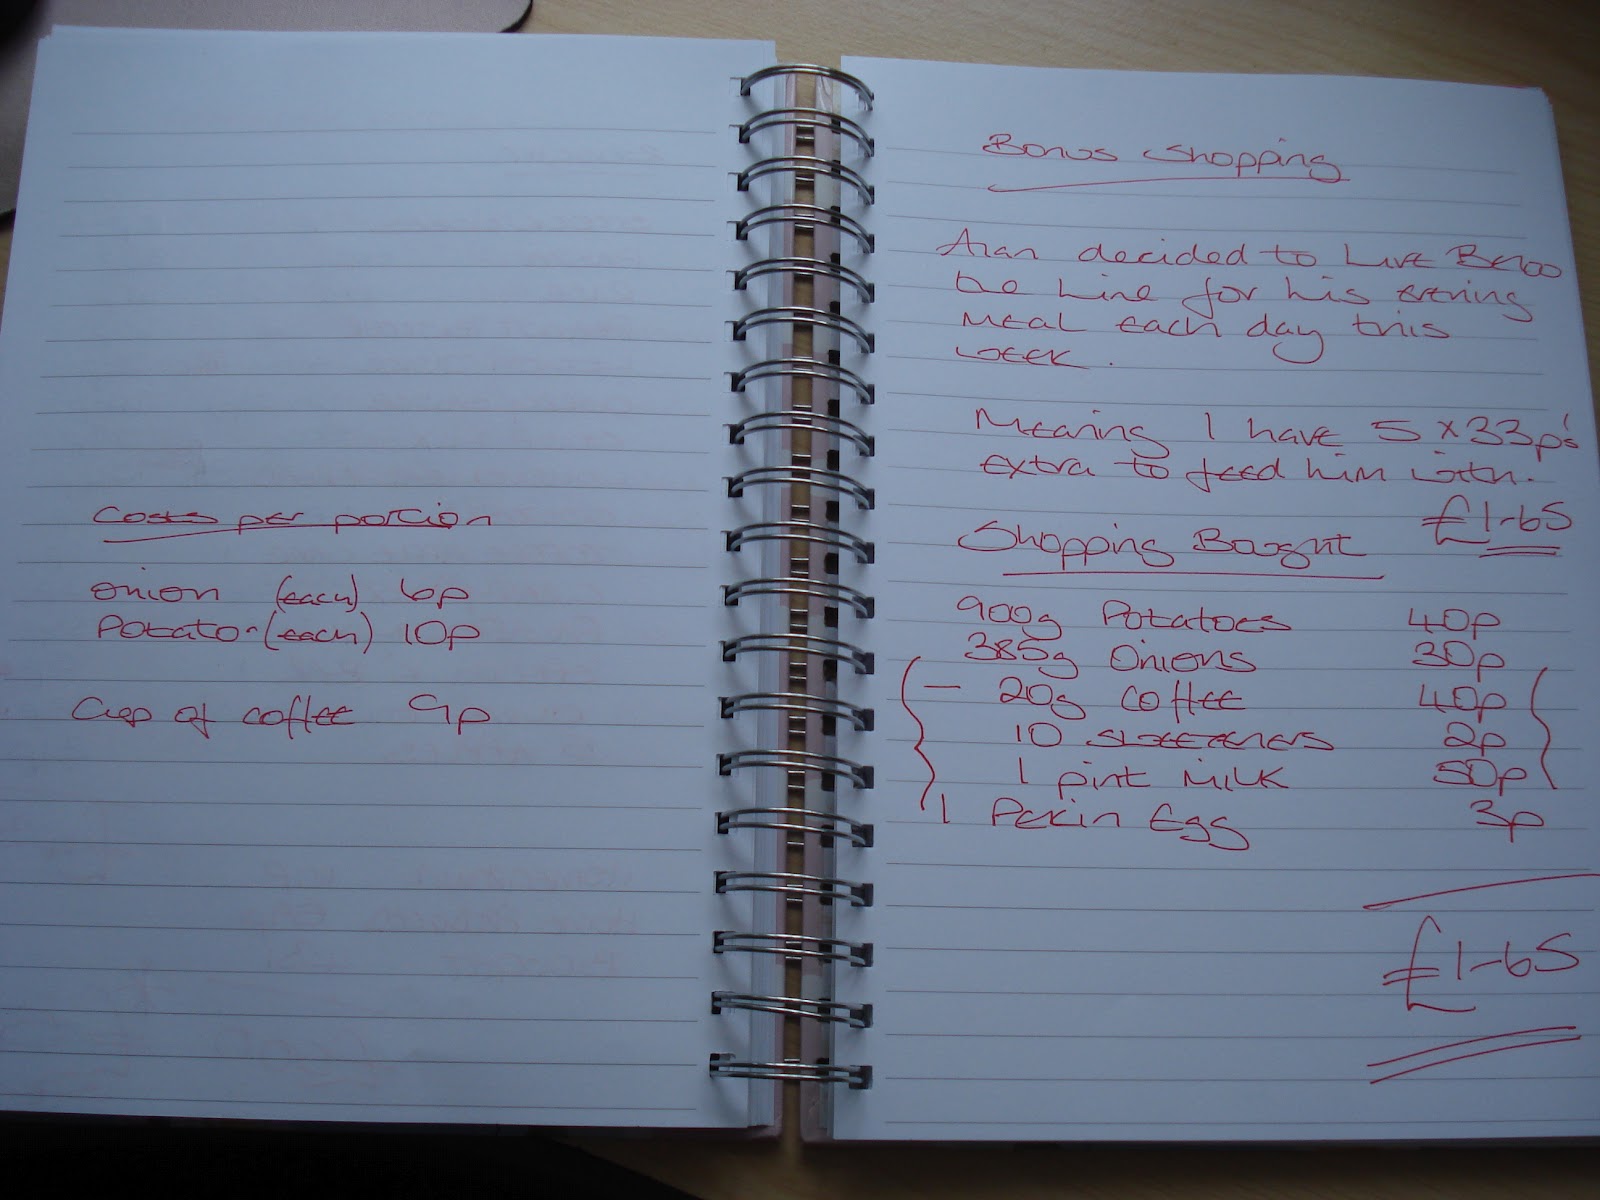 Costs per portion
onion (each) 6p
Potato (each) 10p
Cup of coffee 9p
Bonus Shopping
Alan decided to Live Below
the Line for his evening
meal each day this
week.
Meaning I have 5 x 33p's
extra to feed him with.
£1-65
Shopping Bought
900g Potatoes 40p
385g Onions 30p
- 20g Coffee 40p
10 sweeteners 2p
1 pint Milk 50p
1 Pekin Egg 3p
£1-65